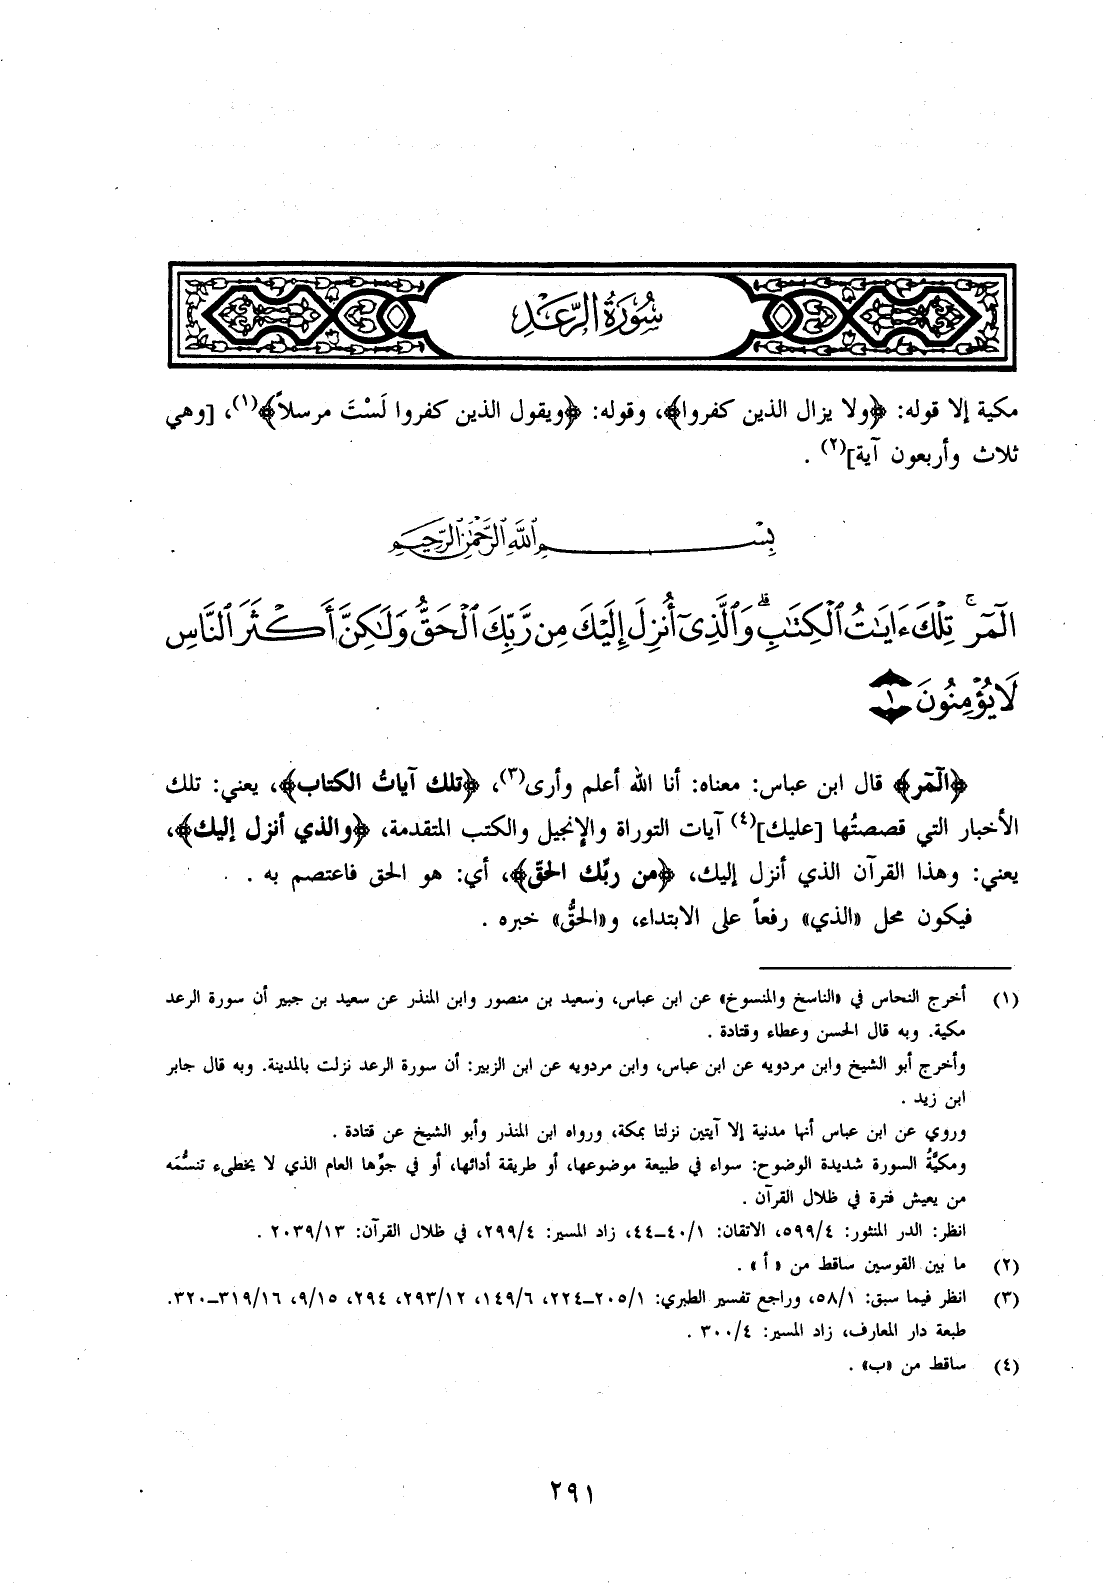 سُورَةُ الرَّعْدِ
مكية إلا قوله: ﴿ولا يزال الذين كفروا﴾، وقوله: ﴿ويقول الذين كفروا لَسْتَ مرسلاً﴾(١)، [وهي
ثلاث وأربعون آية](٢) .
بِسْمِ اللَّهِ الرَّحْمَٰنِ الرَّحِيمِ
الٓمٓر ۚ تِلْكَ ءَايَٰتُ ٱلْكِتَٰبِ ۗ وَٱلَّذِىٓ أُنزِلَ إِلَيْكَ مِن رَّبِّكَ ٱلْحَقُّ وَلَٰكِنَّ أَكْثَرَ ٱلنَّاسِ
لَا يُؤْمِنُونَ ١
﴿الٓمٓر﴾ قال ابن عباس: معناه: أنا الله أعلم وأرى(٣)، ﴿تلك آياتُ الكتاب﴾، يعني: تلك
الأخبار التي قصصتُها [عليك](٤) آيات التوراة والإنجيل والكتب المتقدمة، ﴿والذي أنزل إليك﴾،
يعني: وهذا القرآن الذي أنزل إليك، ﴿من ربِّك الحقّ﴾، أي: هو الحق فاعتصم به .
فيكون محل «الذي» رفعاً على الابتداء، و«الحقُّ» خبره .
(١) أخرج النحاس في «الناسخ والمنسوخ» عن ابن عباس، وسعيد بن منصور وابن المنذر عن سعيد بن جبير أن سورة الرعد
مكية. وبه قال الحسن وعطاء وقتادة .
وأخرج أبو الشيخ وابن مردويه عن ابن عباس، وابن مردويه عن ابن الزبير: أن سورة الرعد نزلت بالمدينة. وبه قال جابر
ابن زيد .
وروي عن ابن عباس أنها مدنية إلا آيتين نزلتا بمكة، ورواه ابن المنذر وأبو الشيخ عن قتادة .
ومكيَّةُ السورة شديدة الوضوح: سواء في طبيعة موضوعها، أو طريقة أدائها، أو في جوِّها العام الذي لا يخطىء تنسُّمَه
من يعيش فترة في ظلال القرآن .
انظر: الدر المنثور: ٥٩٩/٤، الاتقان: ٤٠/١ـ٤٤، زاد المسير: ٢٩٩/٤، في ظلال القرآن: ٢٠٣٩/١٣ .
(٢) ما بين القوسين ساقط من «أ» .
(٣) انظر فيما سبق: ٥٨/١، وراجع تفسير الطبري: ٢٠٥/١ـ٢٢٤، ١٤٩/٦، ٢٩٣/١٢، ٢٩٤، ٩/١٥، ٣١٩/١٦ـ٣٢٠.
طبعة دار المعارف، زاد المسير: ٣٠٠/٤ .
(٤) ساقط من «ب» .
٢٩١